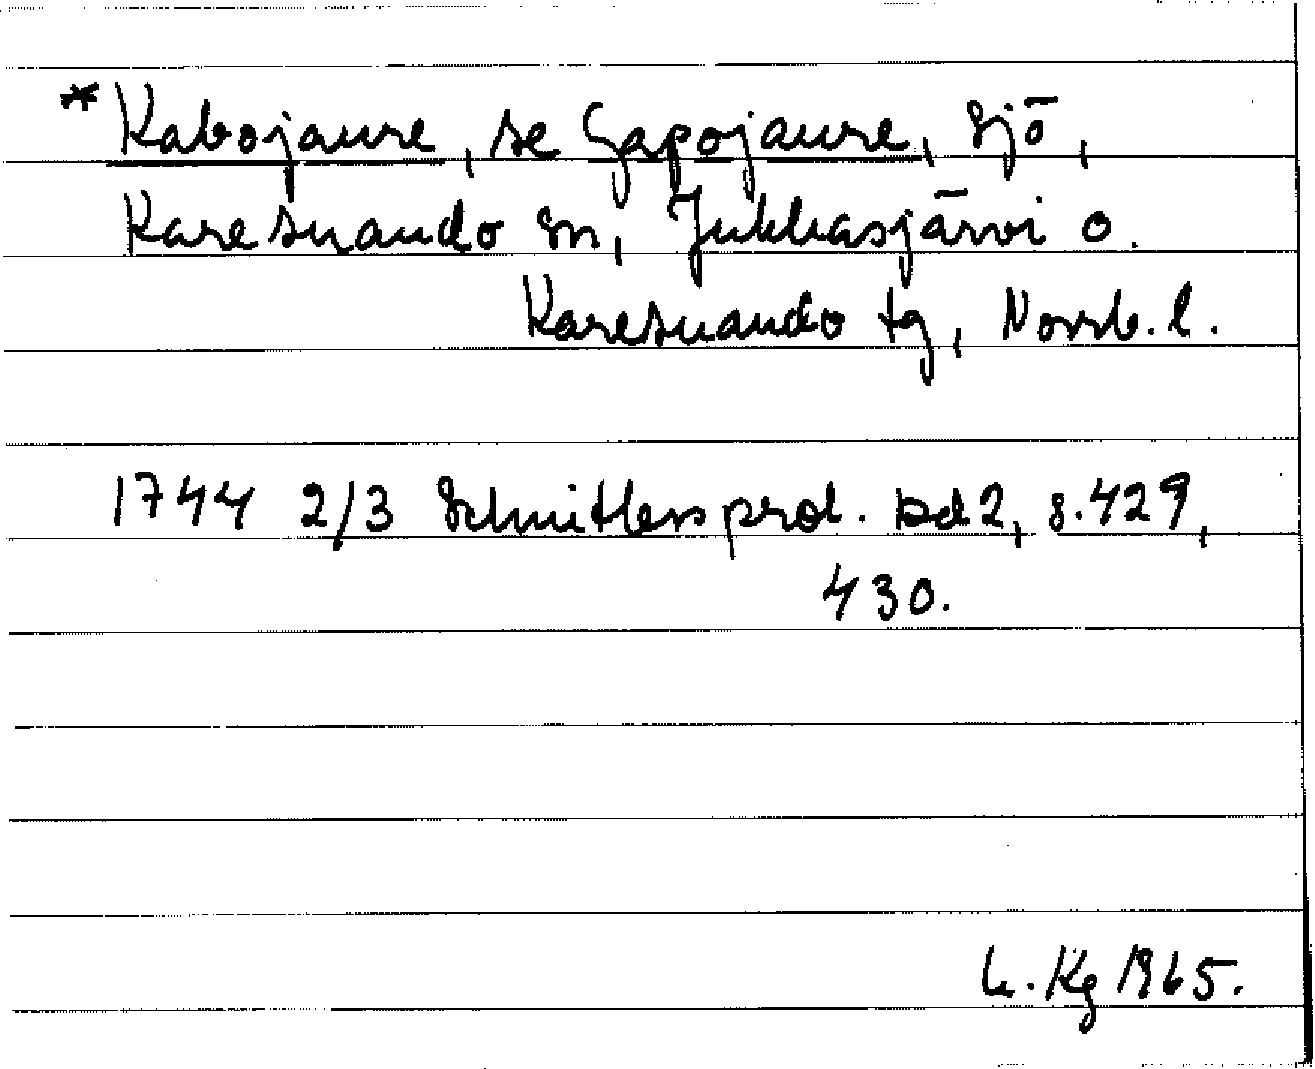 * Kabojaure, se Gapojaure, sjö,
Karesuando sn, Jukkasjärvi o.
Karesuando tg, Norrb. l.
1744 2/3 Schnitlers prot. Bd 2, s. 429,
430.
Kg 1965.